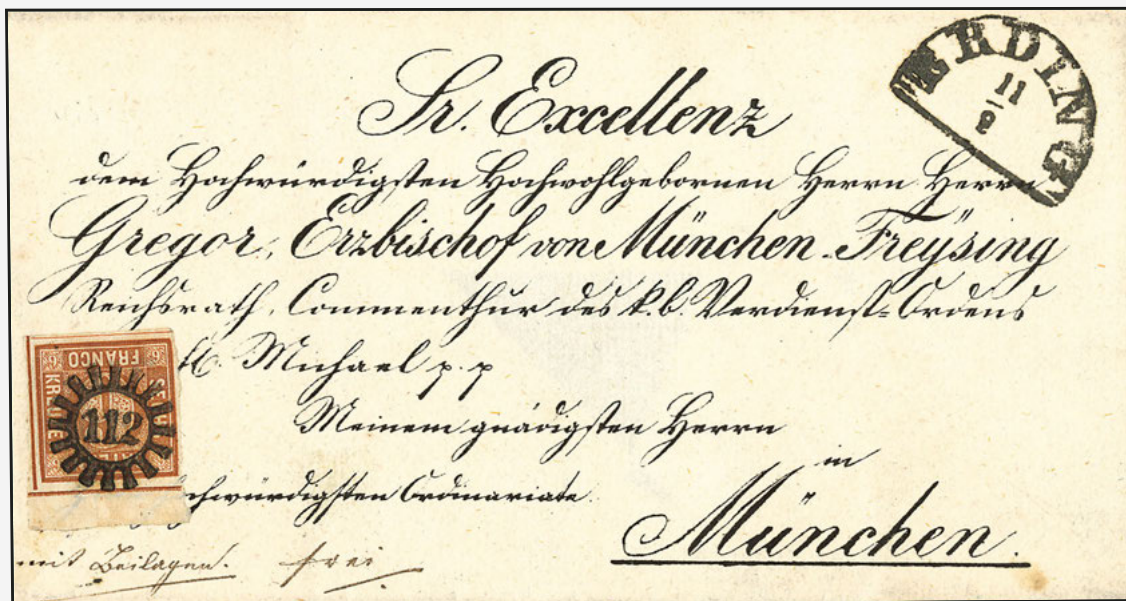 ERDING
11
9
Sr. Excellenz
dem Hochwürdigsten Hochwohlgebornen Herrn Herrn
Gregor, Erzbischof von München-Freÿsing
Reichsrath, Commenthur des k. b. Verdienst-Ordens
Michael p. p
Meinem gnädigsten Herrn
chwürdigsten Ordinariate.
in
München.
mit Beilagen. frei
6 FRANCO 6
KREUZER
112